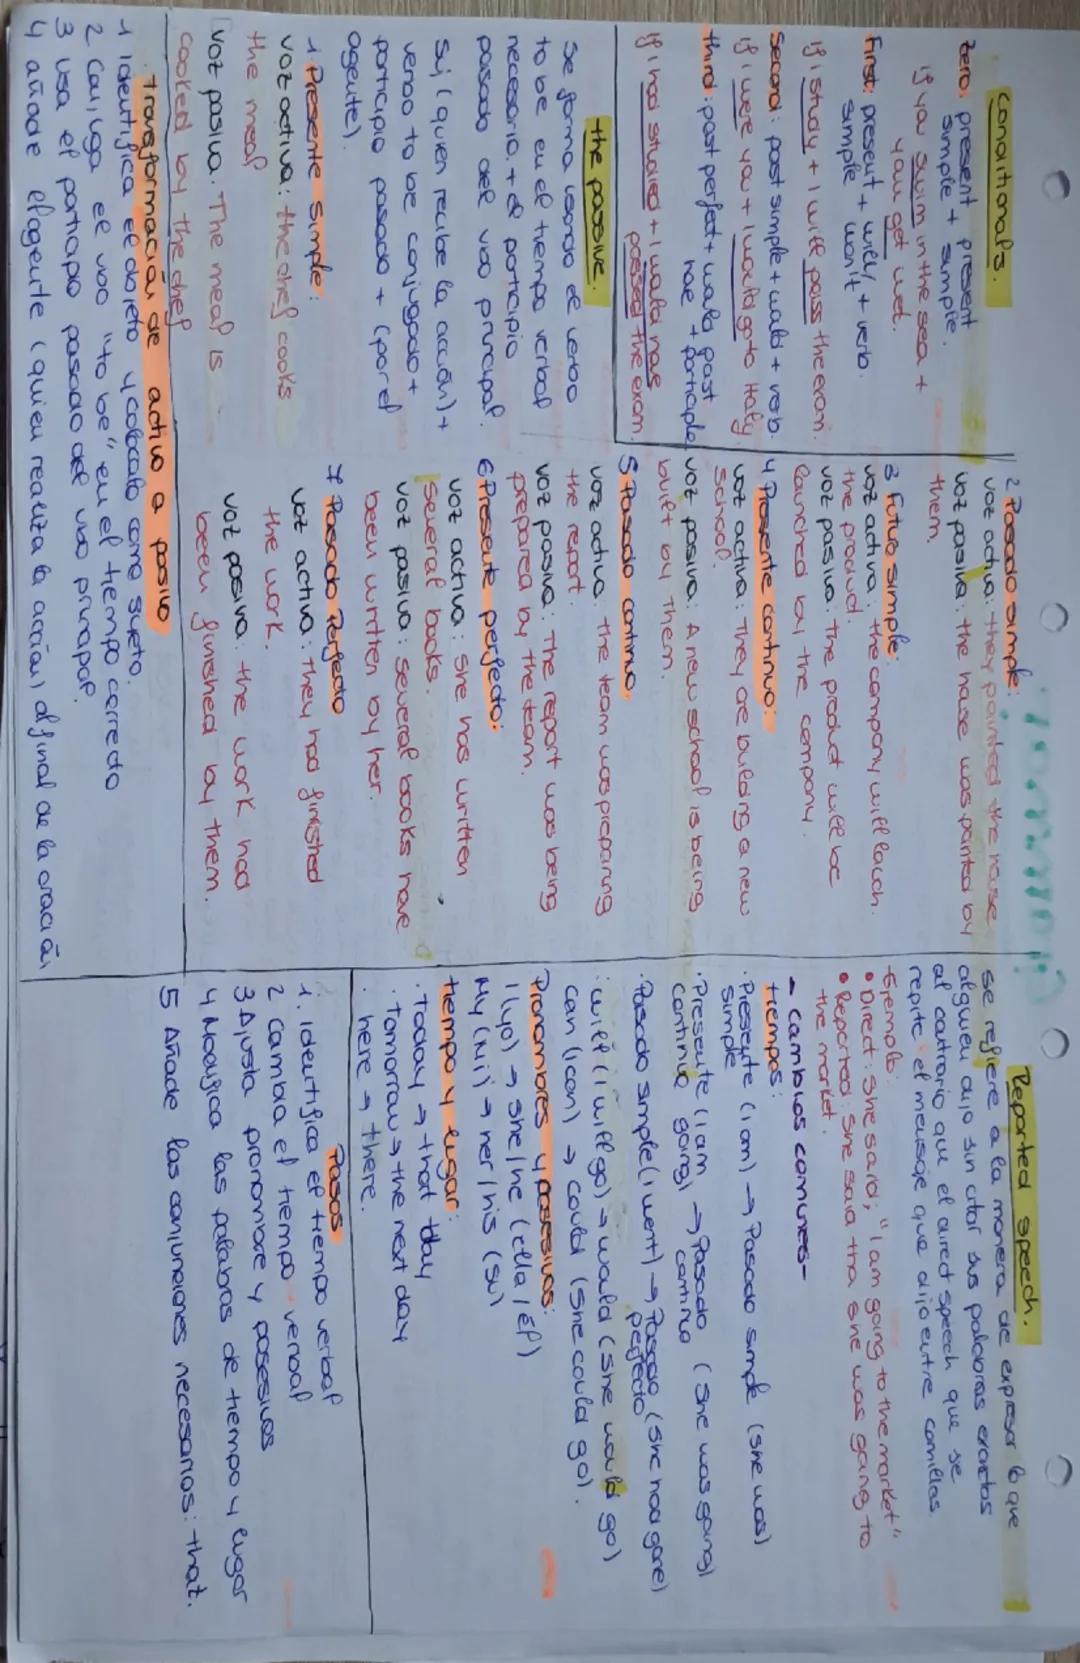 Grammar
Conditionals.
Zero: present present
simple + simple.
if you swim in the sea +
you get wet.
First: present + will/ + verbo.
simple won't
if i study + i will pass the exam.
Second: past simple + would + verb.
if i were you + i would go to Italy.
third: past perfect + would past
have + participle
if i had studied + i would have
passed the exam.
the passive.
Se forma usando el verbo
to be en el tiempo verbal
necesario + el participio
pasado del vbo principal.
Suj (quien recibe la acción) +
verbo to be conjugado +
participio pasado + (por el
agente).
1 Presente simple:
voz activa: the chef cooks
the meal
voz pasiva: The meal is
cooked by the chef
2 Pasado simple:
voz activa: they painted the house
voz pasiva: the house was painted by
them.
3 Futuro simple:
voz activa: the company will lauch
the product.
voz pasiva: the product will be
launched by the company.
4 Presente continuo:
voz activa: They are building a new
school.
voz pasiva: A new school is being
built by them.
5 Pasado continuo:
voz activa: the team was preparing
the report.
voz pasiva: The report was being
prepared by the team.
6 Presente perfecto:
voz activa: she has written
several books.
voz pasiva: several books have
been written by her.
7 Pasado Perfecto
voz activa: they had finished
the work.
voz pasiva: the work had
been finished by them.
transformación de activo a pasivo
1 identifica el objeto y colocalo como sujeto.
2 Conjuga el vbo "to be" en el tiempo correcto
3 usa el participio pasado del vbo principal.
4 añade el agente (quien realiza la acción) al final de la oración
Reported speech.
se refiere a la manera de expresar lo que
alguien dijo sin citar sus palabras exactas
al contrario que el direct speech que se
repite el mensaje que dijo entre comillas
-Ejemplo:
• Direct: She said; "I am going to the market"
• Reported: She said tha she was going to
the market.
- cambios comunes-
tiempos:
· Presente (i am) → Pasado simple (she was)
simple
· Presente (i am → Pasado (she was going)
continuo going) continuo
· Pasado simple (i went) → Pasado (she had gone)
perfecto
· will (i will go) → would (she would go)
can (i can) → could (she could go).
Pronombres y posesivos:
I (yo) → she/he (ella/él)
My (mi) → her/his (su)
tiempo y lugar:
· Today → that day
· Tomorrow → the next day
· here → there.
Pasos
1. identifica el tiempo verbal
2 cambia el tiempo verbal
3 Ajusta pronombre y posesivos
4 Modifica las palabras de tiempo y lugar
5 Añade las conjunciones necesarias: that.